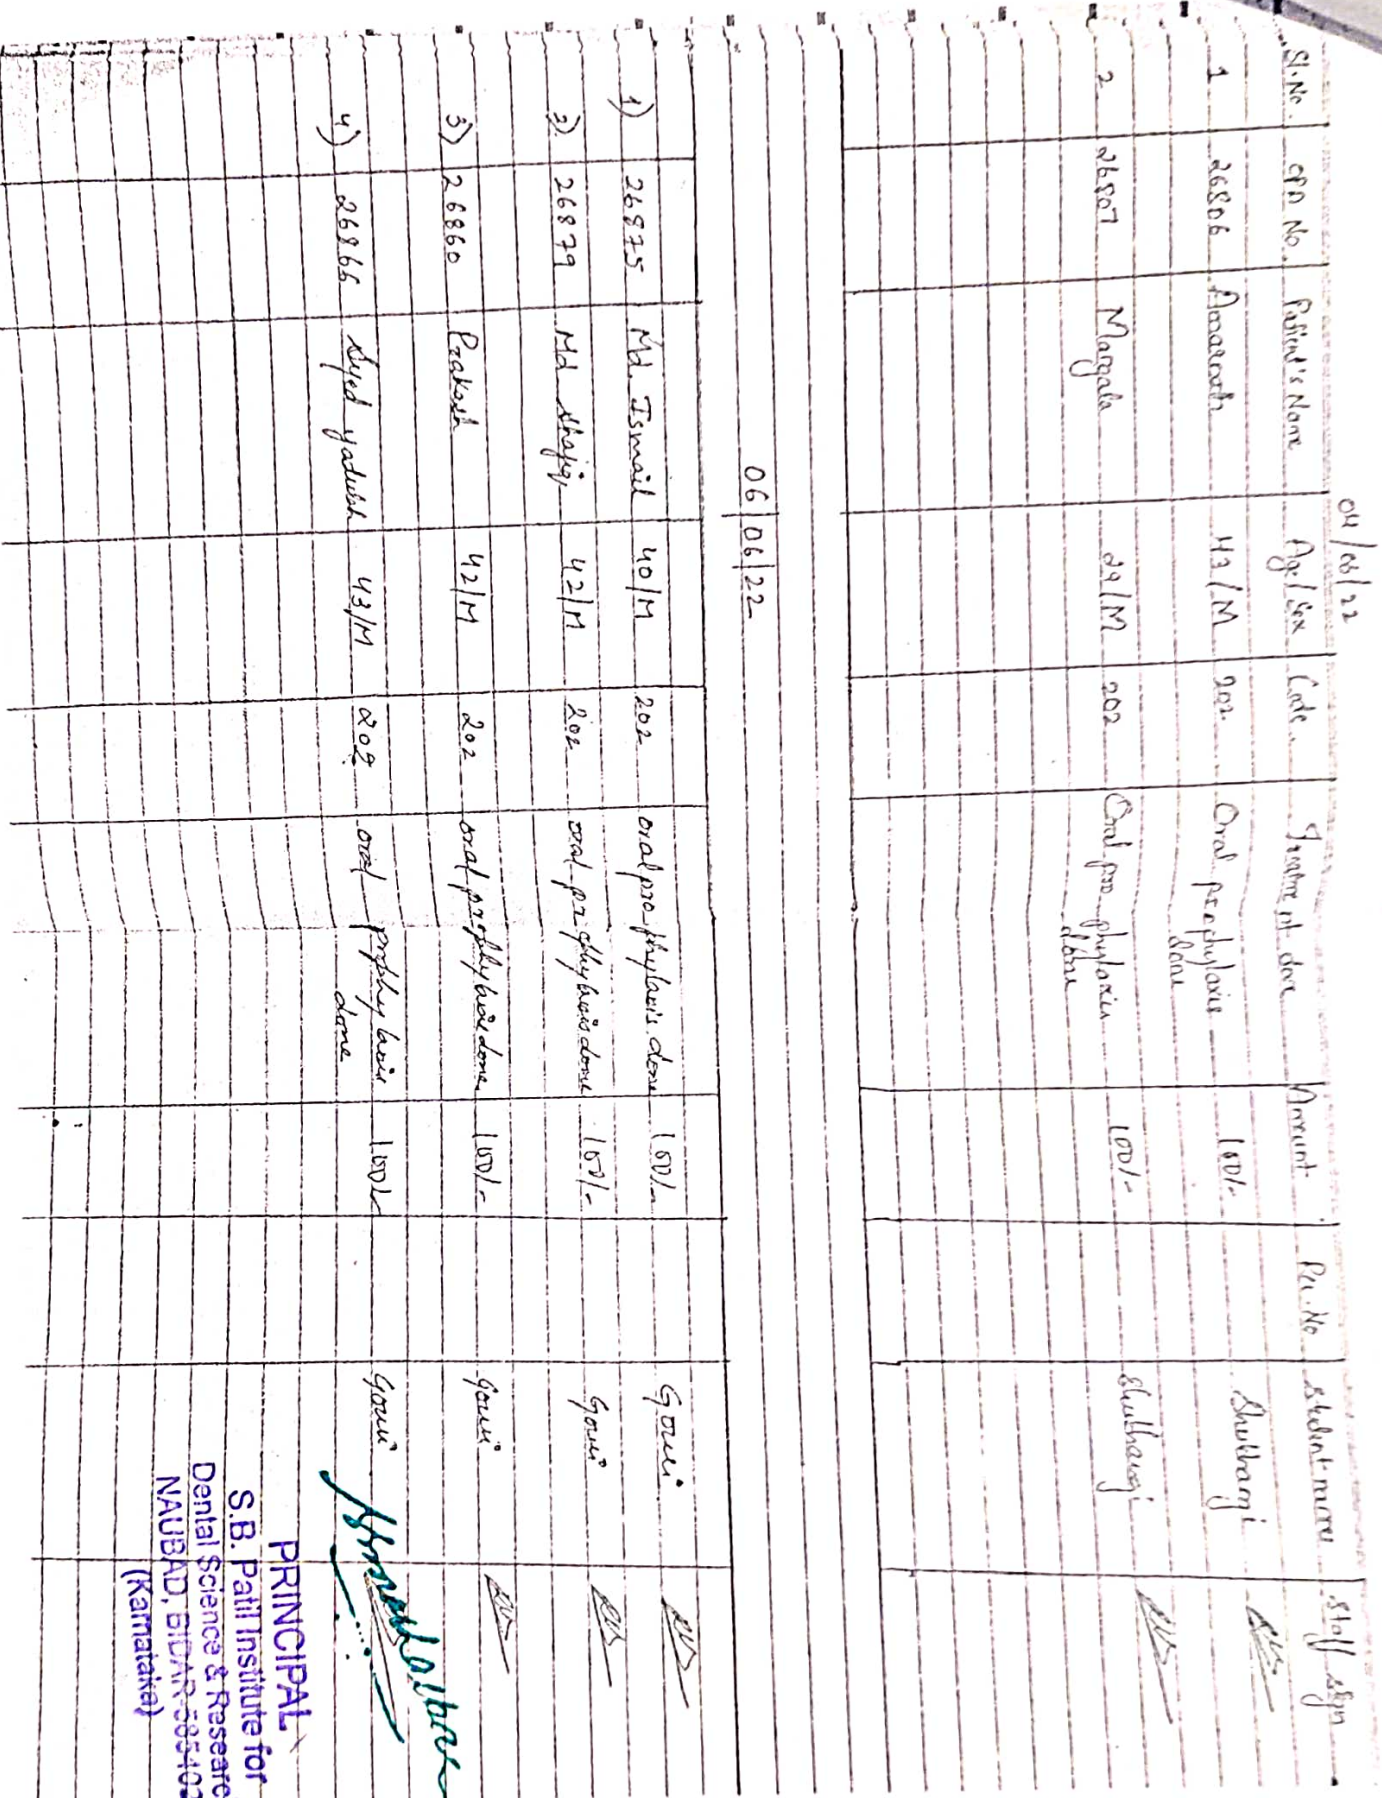 04/06/22
Sl.No. OPD No. Patient's Name Age/Sex Code Treatment done Amount Rec.No Student name Staff sign
1 26806 Amarnath 43/M 202 Oral prophylaxis 100/- Shubhangi
done
2 26807 Mangala 29/M 202 Oral prophylaxis 100/- Shubhangi
done
06/06/22
1) 26875 Md. Ismail 40/M 202 oral prophylaxis done 100/- Gouri
2) 26879 Md Shafiq 42/M 202 oral prophylaxis done 100/- Gouri
3) 26860 Prakash 42/M 202 oral prophylaxis done 100/- Gouri
4) 26866 Syed 43/M 202 oral prophylaxis 100/- Gouri
done
PRINCIPAL
S.B. Patil Institute for
Dental Science & Researc
NAUBAD, BIDAR-585402
(Karnataka)